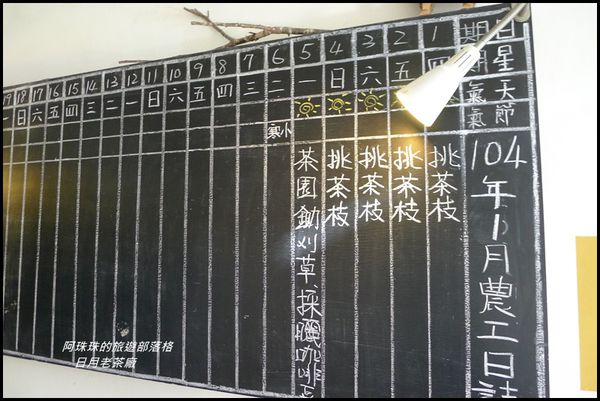 104年1月農工日誌
日期 1 2 3 4 5 6 7 8 9 10 11 12 13 14 15 16 17 18 19
星期 四 五 六 日 一 二 三 四 五 六 日 一 二 三 四 五 六 日 一
天氣
節氣 小寒
挑茶枝
挑茶枝
挑茶枝
挑茶枝
茶園鋤刈草、採曬咖啡
阿珠珠的旅遊部落格
日月老茶廠